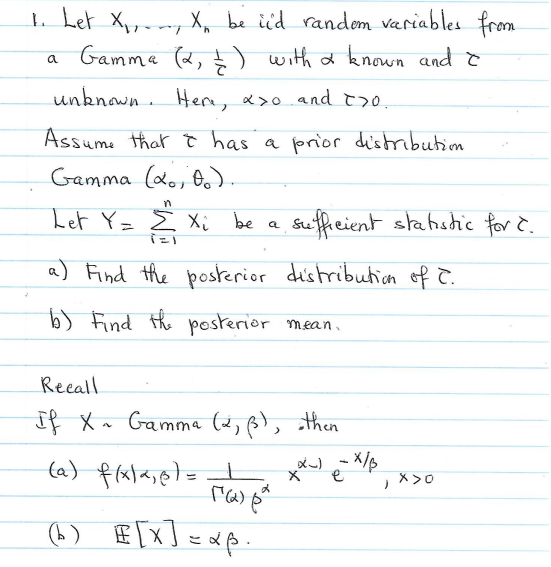 1. Let X₁, ..., Xₙ be iid random variables from
a Gamma (α, 1/τ) with α known and τ
unknown. Here, α>0 and τ>0.
Assume that τ has a prior distribution
Gamma (α₀, θ₀).
Let Y = Σᵢ₌₁ⁿ Xᵢ be a sufficient statistic for τ.
a) Find the posterior distribution of τ.
b) Find the posterior mean.
Recall
If X ~ Gamma (α, β), then
(a) f(x|α,β) = 1/(Γ(α) β^α) x^(α-1) e^(-x/β), x>0
(b) E[X] = αβ.